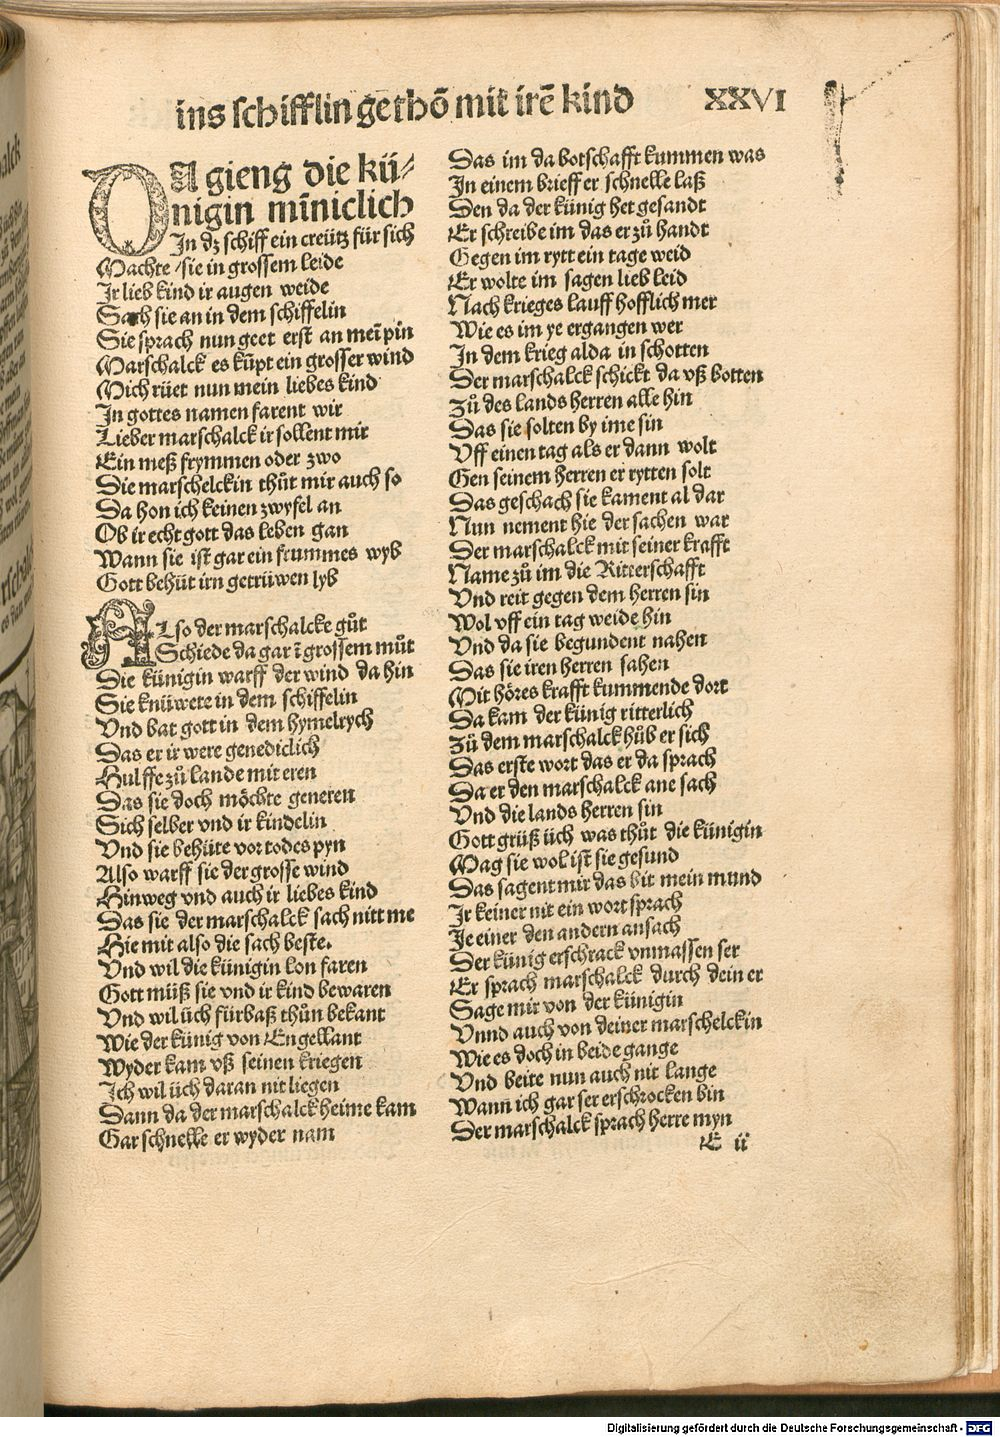 ins schifflin gethō mit irē kind XXVI
DA gieng die kü⸗
nigin miñiclich
In dz schiff ein creütz für sich
Machte / sie in grossem leide
Ir lieb kind ir augen weide
Sach sie an in dem schiffelin
Sie sprach nun geet erst an meī pin
Marschalck es kūpt ein grosser wind
Mich rüet nun mein liebes kind
In gottes namen farent wir
Lieber marschalck ir sollent mir
Ein meß frymmen oder zwo
Die marschelckin thüt mir auch so
Da hon ich keinen zwyfel an
Ob ir echt gott das leben gan
Wann sie ist gar ein frummes wyb
Gott behüt irn getrüwen lyb
ALso der marschalcke gůt
Schiede da gar ī grossem můt
Die künigin warff der wind da hin
Sie knüwete in dem schiffelin
Vnd bat gott in dem hymelrych
Das er ir were genediclich
Hulffe zů lande mit eren
Das sie doch möchte generen
Sich selber vnd ir kindelin
Vnd sie behüte vor todes pyn
Also warff sie der grosse wind
Hinweg vnd auch ir liebes kind
Das sie der marschalck sach nitt me
Hie mit also die sach beste.
Vnd wil die künigin lon faren
Gott müß sie vnd ir kind bewaren
Vnd wil üch fürbaß thůn bekant
Wie der künig von Engellant
Wyder kam vß seinen kriegen
Ich wil üch daran nit liegen
Dann da der marschalck heime kam
Gar schnelle er wyder nam
Das im da botschafft kummen was
In einem brieff er schnelle laß
Den da der künig het gesandt
Er schreibe im das er zů handt
Gegen im rytt ein tage weid
Er wolte im sagen lieb leid
Nach krieges lauff hofflich mer
Wie es im ye ergangen wer
In dem krieg alda in schotten
Der marschalck schickt da vß botten
Zů des lands herren alle hin
Das sie solten by ime sin
Vff einen tag als er dann wolt
Gen seinem herren er rytten solt
Das geschach sie kament al dar
Nun nement hie der sachen war
Der marschalck mit seiner krafft
Name zů im die Ritterschafft
Vnd reit gegen dem herren sin
Wol vff ein tag weide hin
Vnd da sie begundent nahen
Das sie iren herren sahen
Mit höres krafft kummende dort
Da kam der künig ritterlich
Zů dem marschalck hůb er sich
Das erste wort das er da sprach
Da er den marschalck ane sach
Vnd die lands herren sin
Gott grüß üch was thůt die künigin
Mag sie wol ist sie gesund
Das sagent mir das bit mein mund
Ir keiner nit ein wort sprach
Je einer den andern ansach
Der künig erschrack vnmassen ser
Er sprach marschalck durch dein er
Sage mir von der künigin
Vnnd auch von deiner marschelckin
Wie es doch in beide gange
Vnd beite nun auch nit lange
Wann ich gar ser erschrocken bin
Der marschalck sprach herre myn
E ii
Digitalisierung gefördert durch die Deutsche Forschungsgemeinschaft - DFG